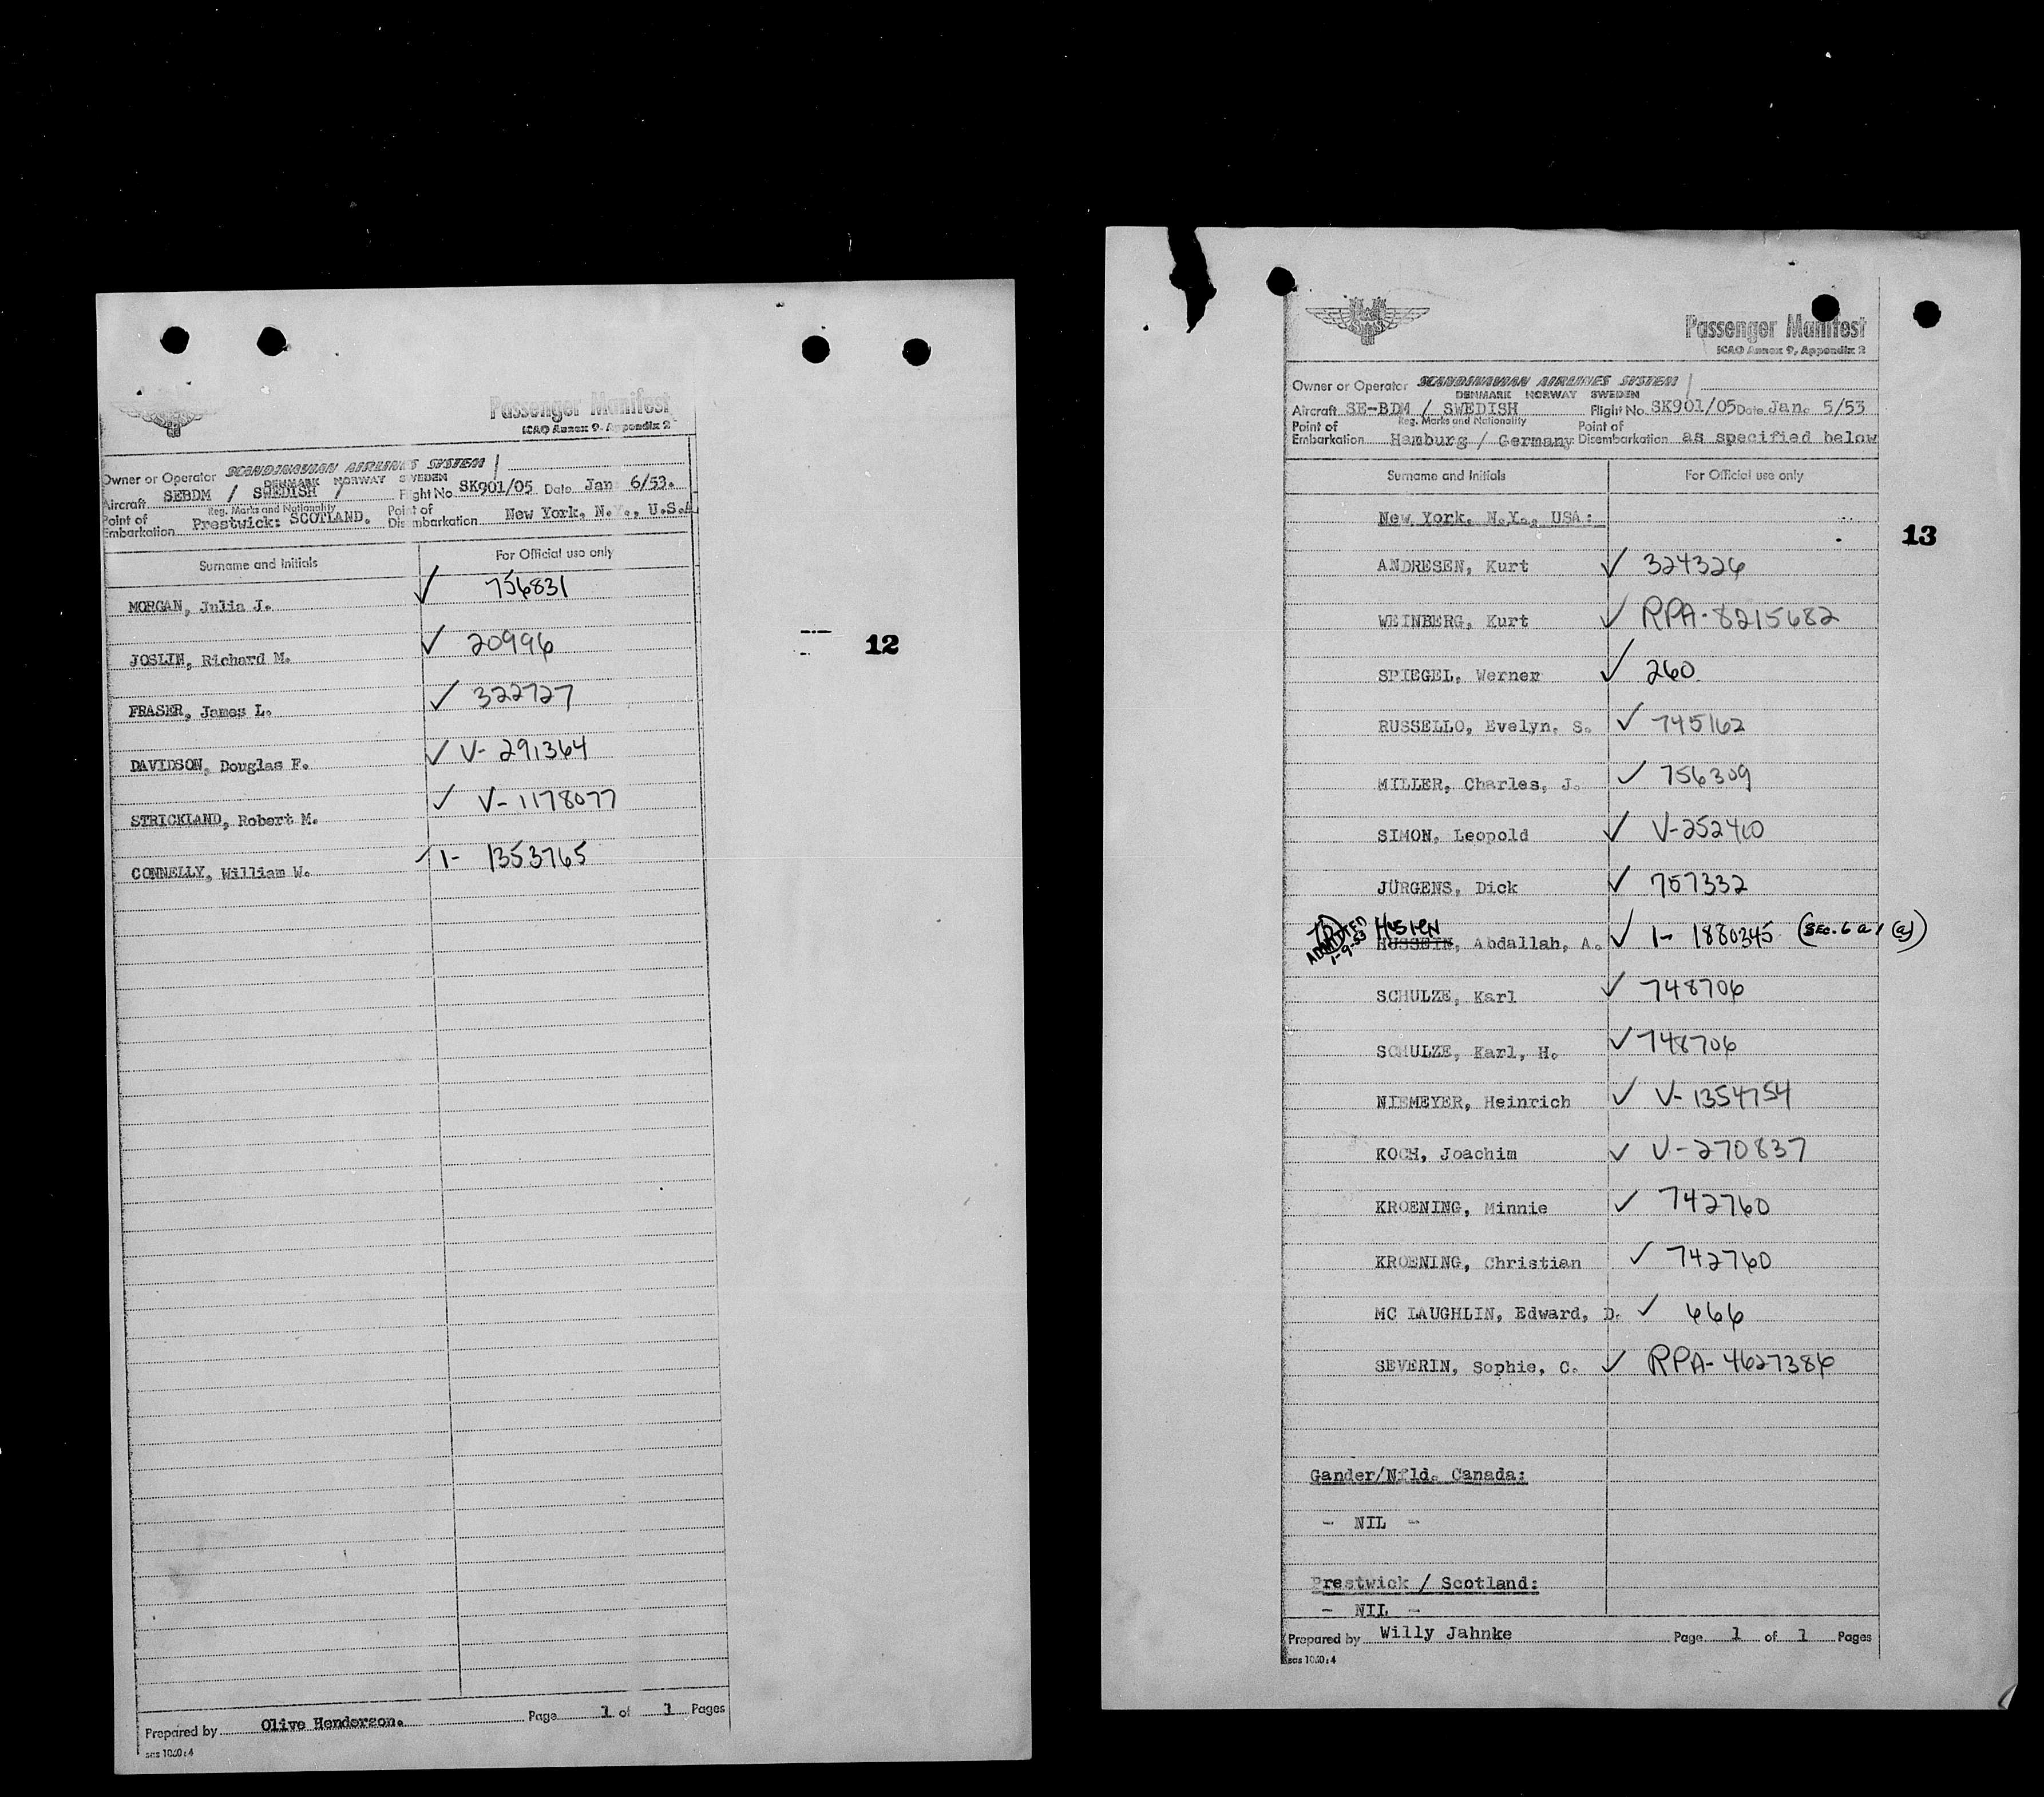 Passenger Manifest
ICAO Annex 9, Appendix 2
Owner or Operator SCANDINAVIAN AIRLINES SYSTEM /
DENMARK NORWAY SWEDEN
Aircraft SEBDM / SWEDISH / Flight No SK901/05 Date Jan 6/53.
Reg. Marks and Nationality
Point of Embarkation Prestwick: SCOTLAND. Point of Disembarkation New York, N.Y., U.S.A
Surname and Initials For Official use only
MORGAN, Julia J. ✓ 756831
JOSLIN, Richard M. ✓ 20996
FRASER, James L. ✓ 322727
DAVIDSON, Douglas F. ✓ V- 291364
STRICKLAND, Robert M. ✓ V- 1178077
CONNELLY, William W. ✓ 1- 1353765
12
Prepared by Olive Henderson. Page 1 of 1 Pages
sas 1060:4
Passenger Manifest
ICAO Annex 9, Appendix 2
Owner or Operator SCANDINAVIAN AIRLINES SYSTEM /
DENMARK NORWAY SWEDEN
Aircraft SE-BDM / SWEDISH Flight No SK901/05 Date Jan. 5/53
Reg. Marks and Nationality
Point of Embarkation Hamburg / Germany Point of Disembarkation as specified below
Surname and Initials For Official use only
New York, N.Y., USA:
13
ANDRESEN, Kurt ✓ 324326
WEINBERG, Kurt ✓ RPA-8215682
SPIEGEL, Werner ✓ 260
RUSSELLO, Evelyn, S. ✓ 745162
MILLER, Charles, J. ✓ 756309
SIMON, Leopold ✓ V-252460
JÜRGENS, Dick ✓ 757332
ADMITTED 1-9-53 HUSIEN
HUSSEIN, Abdallah, A. ✓ 1- 1880345 (SEC. 6 a / (a))
SCHULZE, Karl ✓ 748706
SCHULZE, Karl, H. ✓ 748706
NIEMEYER, Heinrich ✓ V- 1354754
KOCH, Joachim ✓ V-270837
KROENING, Minnie ✓ 742760
KROENING, Christian ✓ 742760
MC LAUGHLIN, Edward, D. ✓ 666
SEVERIN, Sophie, C. ✓ RPA- 4627386
Gander/Nfld. Canada:
- NIL -
Prestwick / Scotland:
- NIL -
Prepared by Willy Jahnke Page 1 of 1 Pages
sas 1060:4